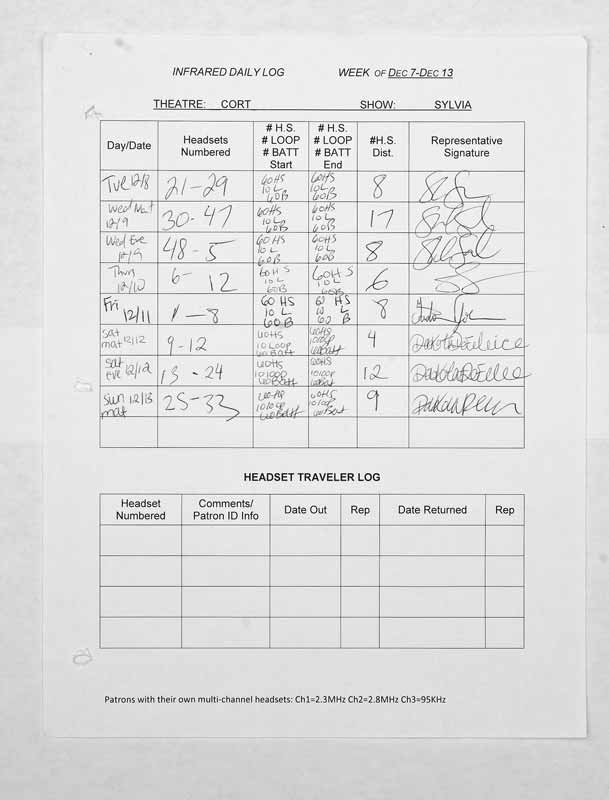 INFRARED DAILY LOG WEEK OF DEC 7-DEC 13
THEATRE: CORT SHOW: SYLVIA
Day/Date Headsets Numbered # H.S. # LOOP # BATT Start # H.S. # LOOP # BATT End #H.S. Dist. Representative Signature
Tue 12/8 21-29 60HS 10 L 60B 60HS 10 L 60B 8
Wed Mat 12/9 30-47 60HS 10 L 60B 60HS 10 L 60B 17
Wed Eve 12/9 48-5 60HS 10 L 60B 60HS 10 L 60B 8
Thur 12/10 6-12 60HS 10 L 60B 60HS 10 L 60B 6
Fri 12/11 1-8 60 HS 10 L 60 B 60 HS 10 L 60 B 8
Sat mat 12/12 9-12 60HS 10 LOOP 60 Batt 60HS 10 loop 60 Batt 4
Sat eve 12/12 13-24 60HS 10 loop 60 Batt 60HS 10 loop 60 Batt 12
Sun 12/13 mat 25-33 60 HS 10 loop 60 Batt 60HS 10 loop 60 Batt 9
HEADSET TRAVELER LOG
Headset Numbered Comments/ Patron ID Info Date Out Rep Date Returned Rep
Patrons with their own multi-channel headsets: Ch1=2.3MHz Ch2=2.8MHz Ch3=95KHz